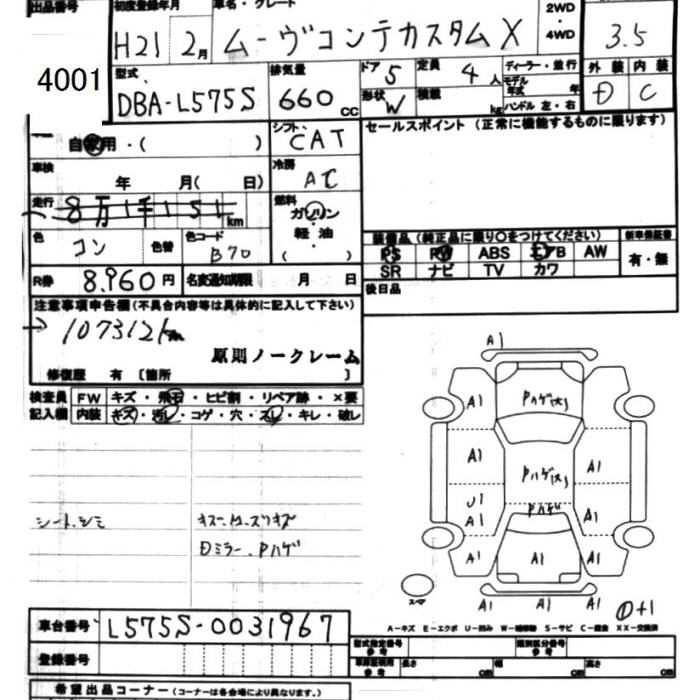 出品番号 初度登録年月 車名・グレード 2WD・4WD
4001 H21 2月 ムーヴコンテカスタム X 3.5
型式 排気量 ドア 5 定員 4人 ディーラー・並行 外装 内装
DBA-L575S 660cc 形状 W 積載 kg モデル年式 年 ハンドル 左・右 D C
自家用・( ) シフト CAT セールスポイント (正常に機能するものに限ります)
車検 年 月( 日) 冷房 AC
走行 8万1千151km 燃料 ガソリン・軽油 ( )
色 コン 色替 色コード B70
装備品 (純正品に限り○をつけてください) 新車保証書
PS PW ABS エアB AW 有・無
SR ナビ TV カワ
R券 8,960円 名変通知期限 月 日 後日品
注意事項申告欄 (不具合内容等は具体的に記入して下さい)
→ 107312km
原則ノークレーム
修復歴 有 [箇所 ]
検査員 FW キズ・飛石・ヒビ割・リペア跡・×要
記入欄 内装 キズ・汚レ・コゲ・穴・スレ・キレ・破レ
A1
A1 Pハゲ(大) A1
A1 Pハゲ(大) A1
U1 A1 Pハゲ A1
A1 A1 A1
A1 A1 A1
スペア
シート、シミ
Dミラー、Pハゲ
①+1
A-キズ E-エクボ U-凹み W-補修跡 S-サビ C-腐食 XX-交換済
車台番号 L575S-0031967
登録番号
型式指定番号 参考 類別区分番号 参考
車庫証明用 参考 長さ cm 幅 cm 高さ cm
希望出品コーナー (コーナーは各会場により異なります。)